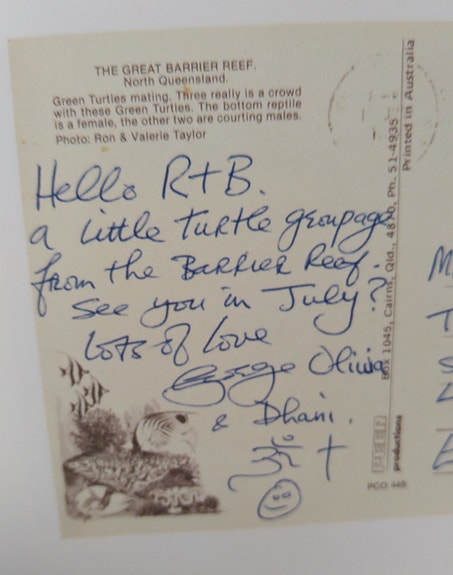 THE GREAT BARRIER REEF.
North Queensland.
Green Turtles mating. Three really is a crowd
with these Green Turtles. The bottom reptile
is a female, the other two are courting males.
Photo: Ron & Valerie Taylor
Hello R+B.
a little Turtle groupage
from the Barrier Reef.
See you in July?
Lots of Love
George Olivia
& Dhani.
ॐ †
Box 1045, Cairns, Qld., 4870, Ph. 51-4935
Printed in Australia
PEER
productions
PCO 445